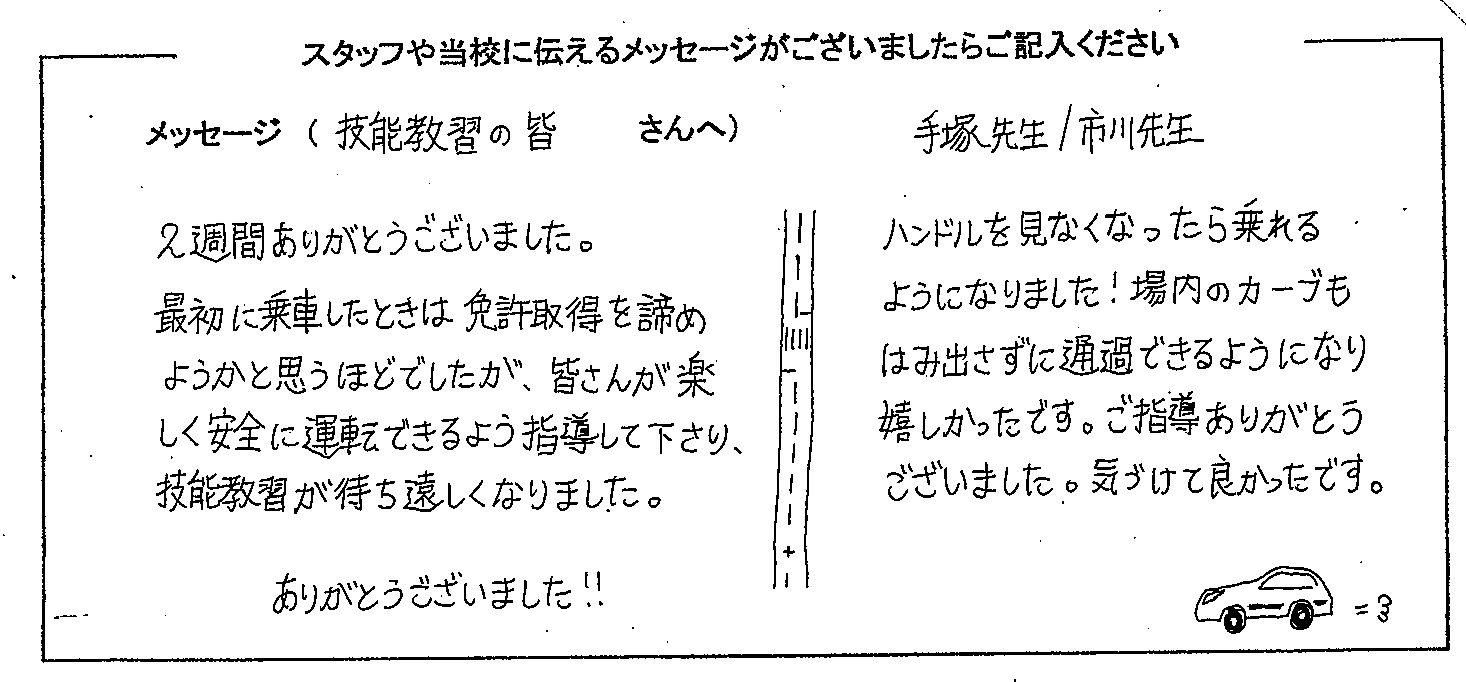 スタッフや当校に伝えるメッセージがございましたらご記入ください
メッセージ（技能教習の皆 さんへ）
2週間ありがとうございました。
最初に乗車したときは免許取得を諦め
ようかと思うほどでしたが、皆さんが楽
しく安全に運転できるよう指導して下さり、
技能教習が待ち遠しくなりました。
ありがとうございました!!
手塚先生/市川先生
ハンドルを見なくなったら乗れる
ようになりました!場内のカーブも
はみ出さずに通過できるようになり
嬉しかったです。ご指導ありがとう
ございました。気づけて良かったです。